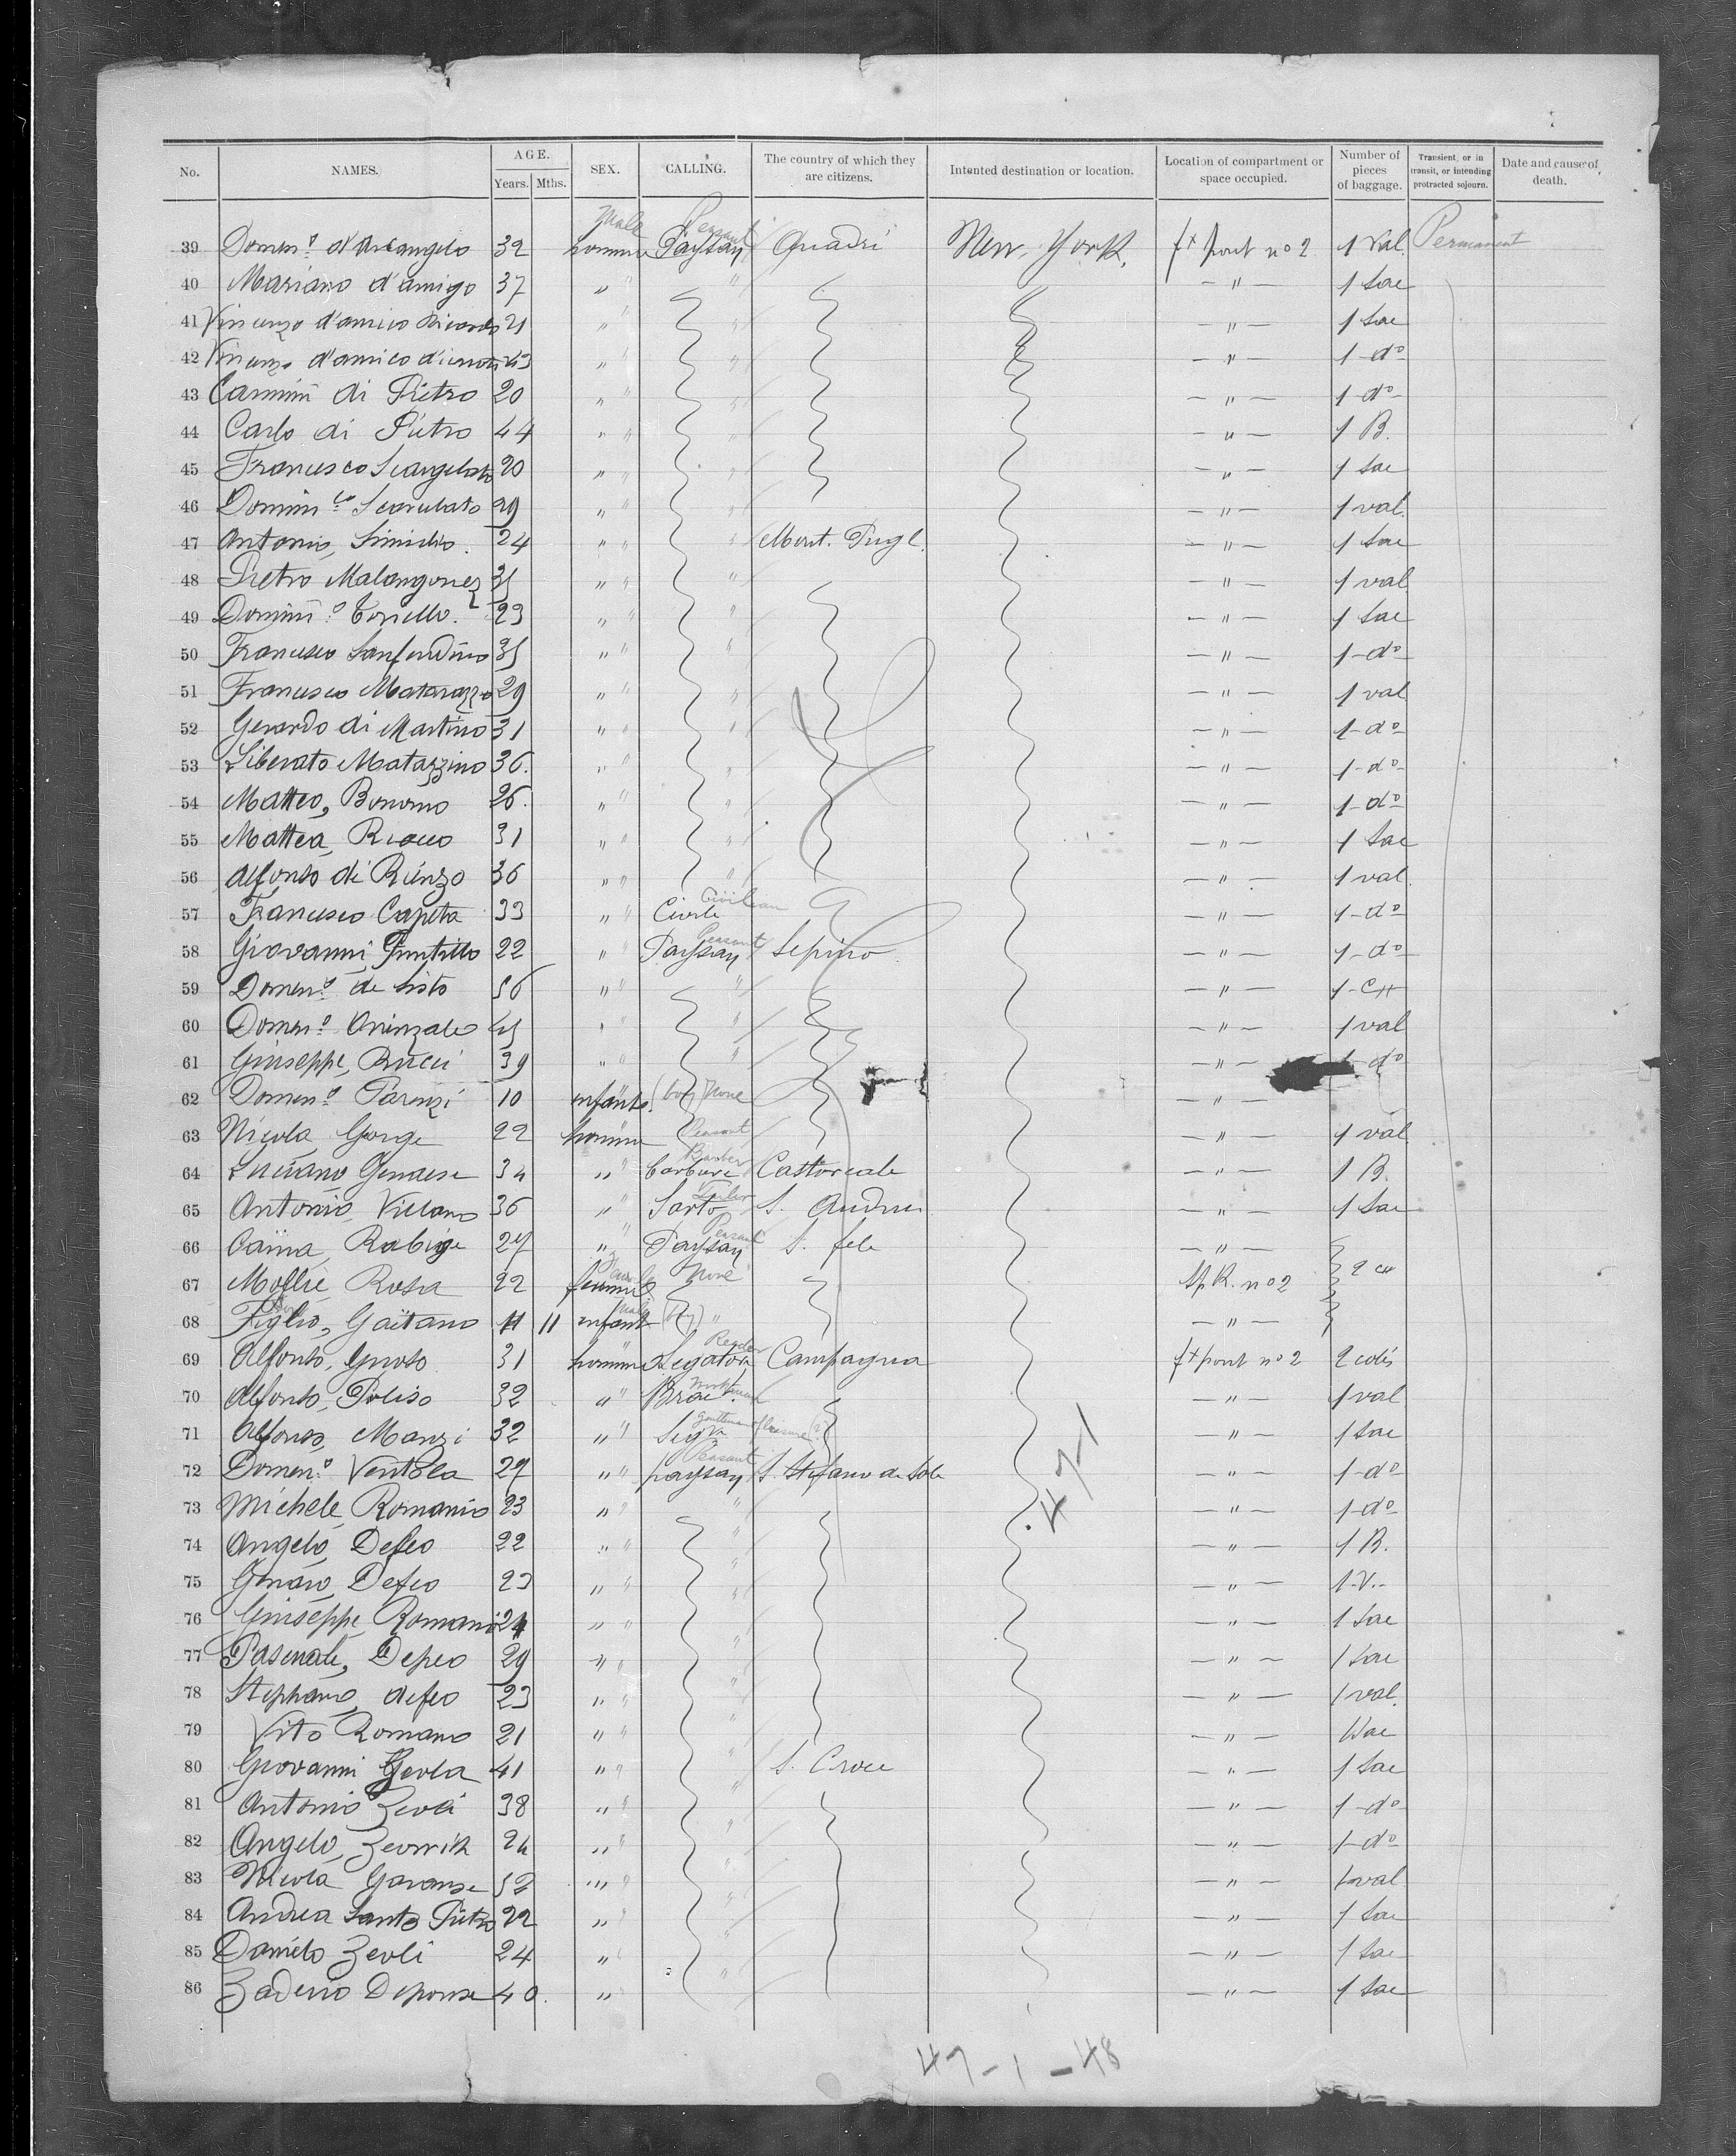 No. NAMES. AGE. Years. Mths. SEX. CALLING. The country of which they are citizens. Intented destination or location. Location of compartment or space occupied. Number of pieces of baggage. Transient, or in transit, or intending protracted sojourn. Date and cause of death.
Male Peasant
39 Domen.º d'Arcangelo 32 homme Paysan Quadri New. York. pont nº 2 1 Val. Permanent
40 Mariano d'amigo 37 " " " — " — 1 Sac
41 Vincenzo d'amico 21 " " " — " — 1 Sac
42 Vincenzo d'amico " " " — " — 1 - dº
43 Carmini di Pietro 20 " " " — " — 1 - dº
44 Carlo di Pietro 44 " " " — " — 1 B.
45 Francesco 20 " " " — " — 1 Sac
46 Domini.co 29 " " " — " — 1 val.
47 Antonio, 24 " " " Mont. Pugl. — " — 1 Sac
48 Pietro 35 " " " — " — 1 val
49 Domini.º Toriello. 23 " " " — " — 1 Sac
50 Francesco 35 " " " — " — 1 - dº
51 Francesco Matarazzo 29 " " " — " — 1 val
52 Gerardo di Martino 31 " " " — " — 1 - dº
53 Liberato Matazzino 36. " " " — " — 1 - dº
54 Matteo, Bonomo 26. " " " — " — 1 - dº
55 Mattea, Rocco 31 " " " — " — 1 Sac
56 Alfonso di Rienzo 36 " " " — " — 1 val.
57 Francesco Capeta 33 " " Civile Civilian — " — 1 - dº
58 Giovanni, 22 " " Paysan Peasant Sepino — " — 1 - dº
59 Domen.º de Sisto 56 " " " — " —
60 Domen.º 45 " " " — " — 1 val
61 Giuseppe, Rucci 39 " " " — " — dº
62 Domen.º Parenzi 10 enfants. (boy) None — " —
63 Nicola, George 22 homme Peasant — " — 1 val
64 Luciano, 34 " " Barber Castoreale — " — 1 B.
65 Antonio, Villano 36 " " Sarto Tailor S. Andrea — " — 1 Sac
66 27 " " Paysan Peasant S. fele — " —
67 Moglie, Rosa 22 femme Female None Sp R. nº 2 2
68 Figlio, Gaëtano 11 enfant Male (Boy) " — " —
69 Alfonso, 31 homme " Segatore Campagna pont nº 2 2 colis
70 Alfonso, Poliso 32 " " Brac. Workman — " — 1 val
71 Alfonso, Manzi 32 " " Gentleman of leisure (?) — " — 1 Sac
72 Domen.º Ventola 27 " " paysan Peasant S. Stefano de Sole — " — 1 - dº
73 Michele, Romanio 23 " " " — " — 1 - dº
74 Angelo, Defeo 22 " " " — " — 1 B.
75 Defeo 23 " " " — " — 1-V.-
76 Giuseppe, Romano 24 " " " — " — 1 Sac
77 Pascuale, Defeo 29 " " " — " — 1 Sac
78 Stephano, defeo 23 " " " — " — 1 val.
79 Vito Romano 21 " " " — " — 1 Sac
80 Giovanni Zeola 41 " " " S. Croce — " — 1 Sac
81 Antonio Zeoli 38 " " " — " — 1 - dº
82 Angelo, 24 " " " — " — 1 - dº
83 Nicola 52 " " " — " — 1 val
84 Andrea Santo Pietro 22 " " " — " — 1 Sac
85 Danielo Zeoli 24 " " " — " — 1 Sac
86 40. " " " — " — 1 Sac
47-1
47-1-48